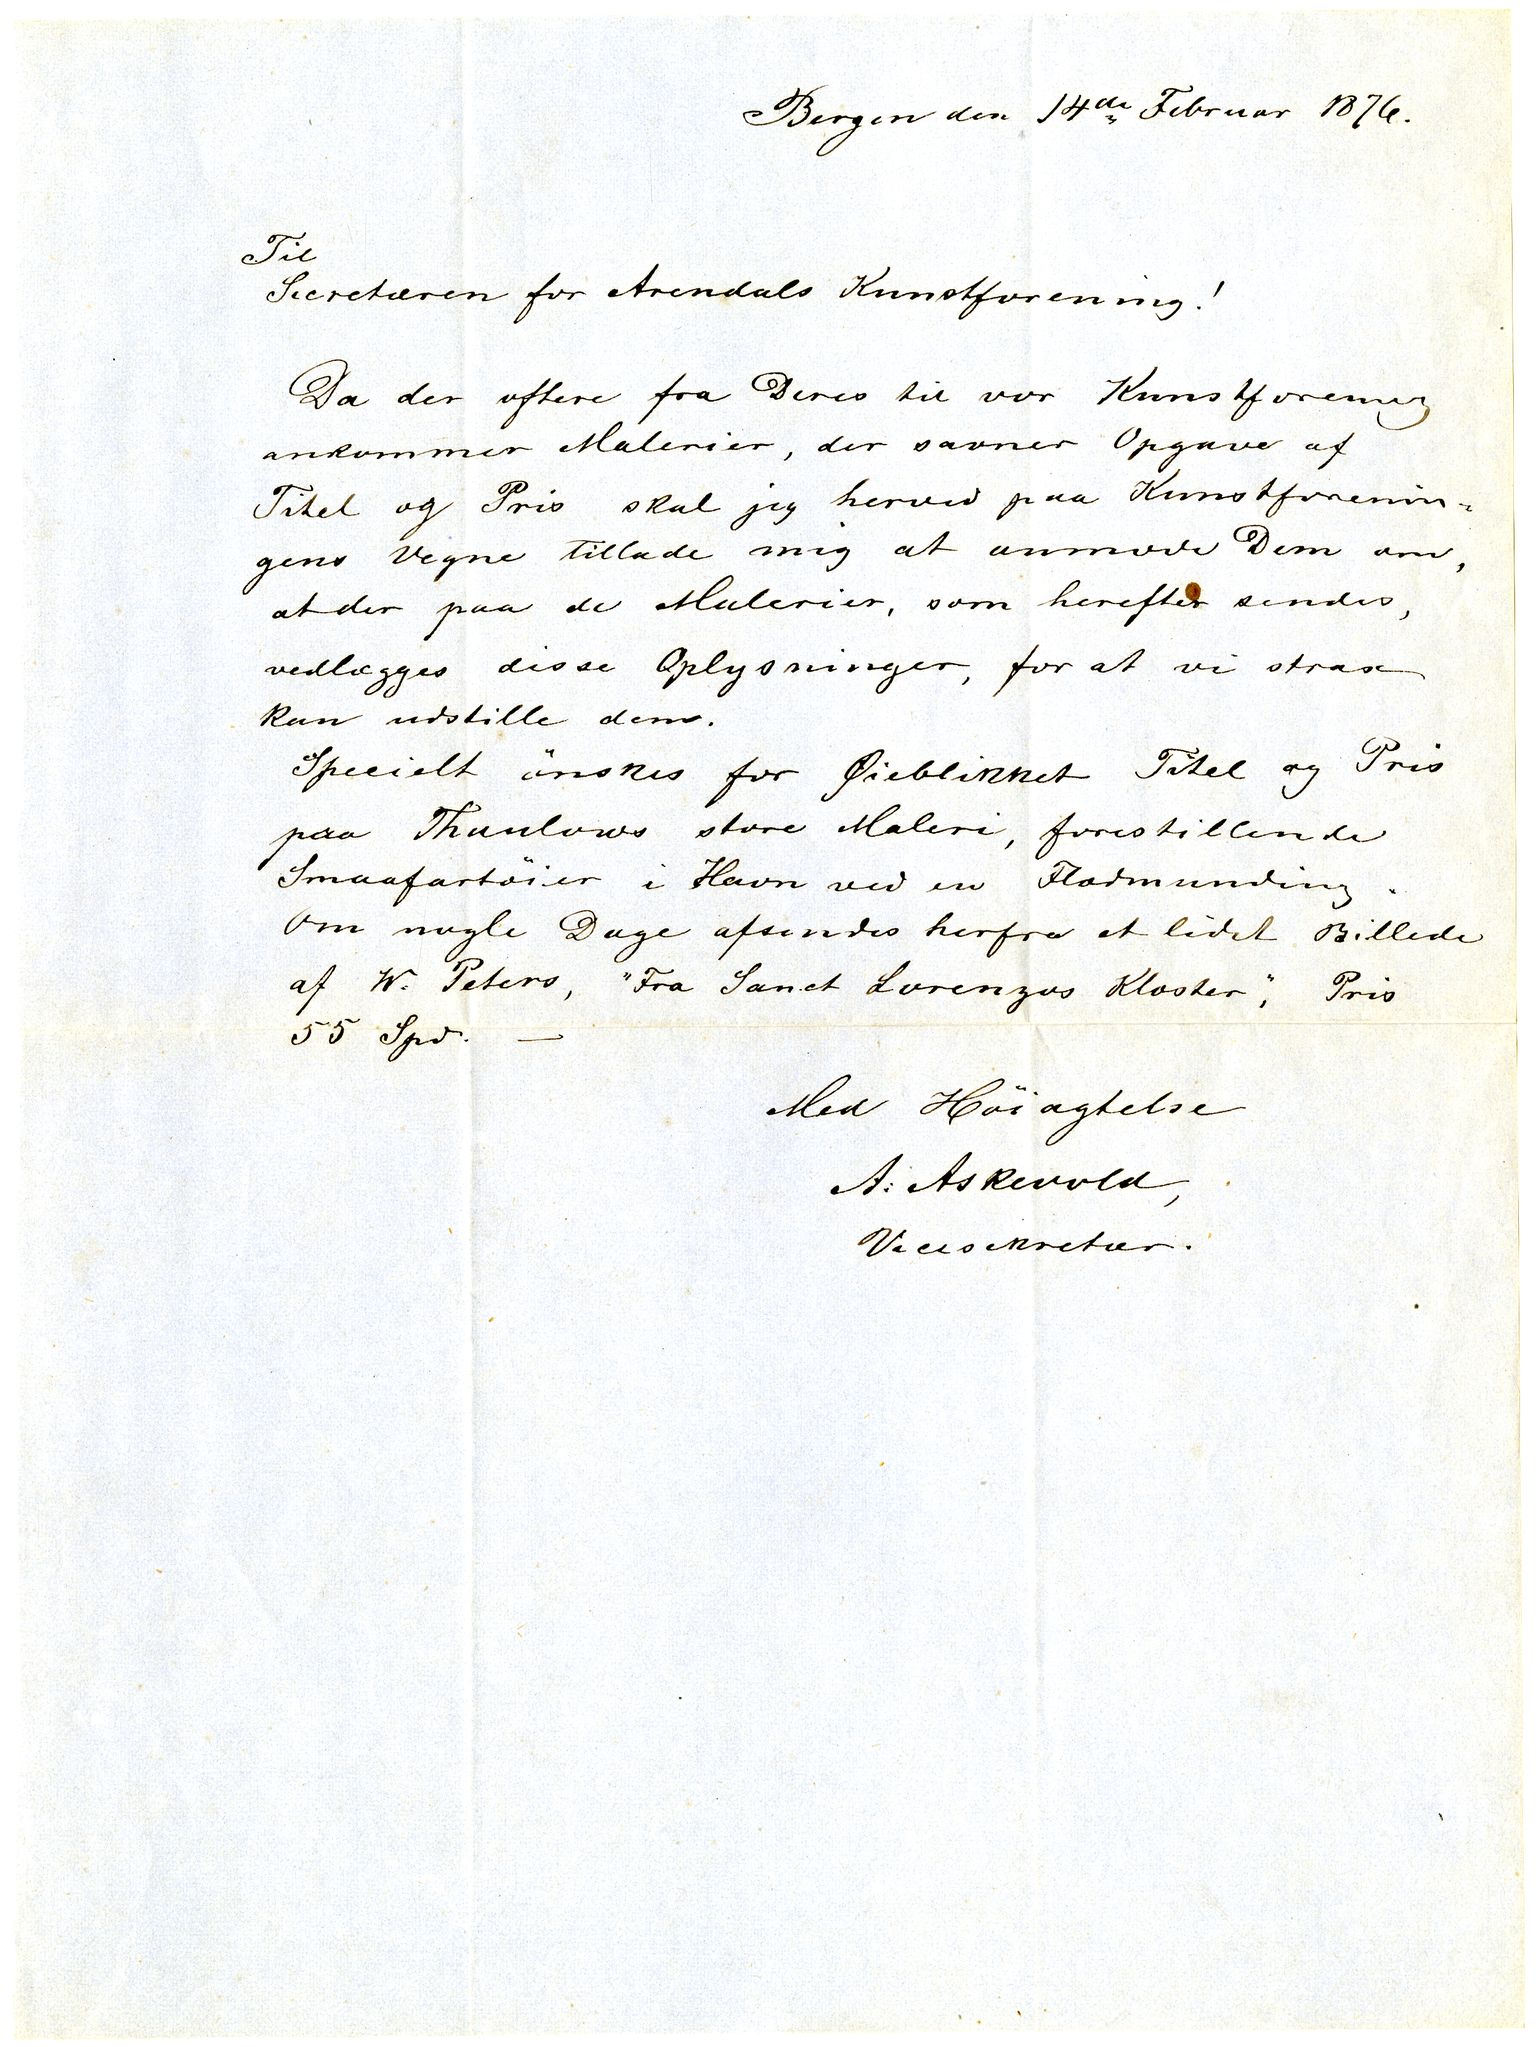 Bergen den 14de Februar 1876.
Til
Secretæren for Arendals Kunstforening!
Da der oftere fra Deres til vor Kunstforening
ankommer Malerier, der savner Opgave af
Titel og Pris skal jeg herved paa Kunstforenin-
gens Vegne tillade mig at anmode Dem om,
at der paa de Malerier, som herefter sendes,
vedlægges disse Oplysninger, for at vi strax
kan udstille dem.
Specielt önskes for Øieblikket Titel og Pris
paa Thaulows store Maleri, forestillende
Smaafartöier i Havn ved en Flodmunding.
Om nogle Dage afsendes herfra et lidet Billede
af W. Peters, "Fra Sanct Lorenzos Kloster", Pris
55 Spd. —
Med Höiagtelse
A. Askevold,
Vicesekretær.